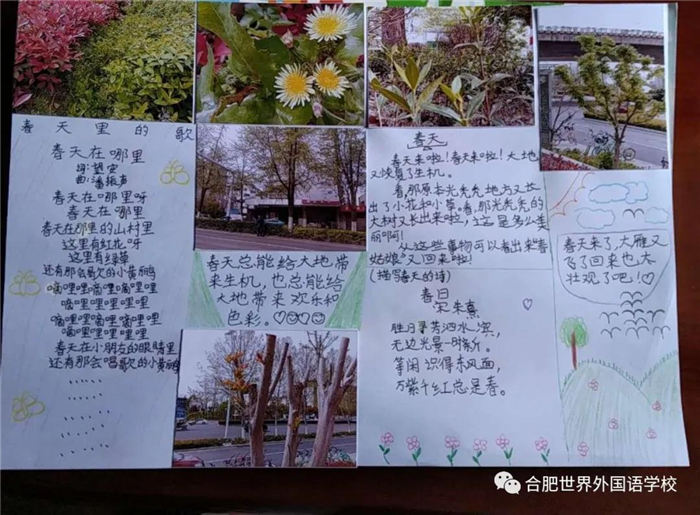 春天里的歌
春天在哪里
词:望安
曲:潘振声
春天在哪里呀
春天在哪里
春天在那里的山村里
这里有红花呀
这里有绿草
还有那会歌唱的小黄鹂
嘀哩哩嘀哩嘀哩哩
嘀哩哩哩哩哩
嘀哩哩嘀哩嘀哩哩
嘀哩哩哩哩哩
春天在小朋友的眼睛里
还有那会唱歌的小黄鹂
春天总能给大地带
来生机,也总能给
大地带来欢乐和
色彩。
春天
春天来啦!春天来啦!大地
又恢复了生机。
看,那原本光秃秃地方又长
出了小花和小草。看,那光秃秃的
大树又长出来啦,这是多么美
丽啊!
从这些事物可以看出来“春
姑娘”又回来啦!
(描写春天的诗)
春日
宋 朱熹
胜日寻芳泗水滨,
无边光景一时新。
等闲识得东风面,
万紫千红总是春。
春天来了,大雁又
飞了回来也太
壮观了吧!
合肥世界外国语学校